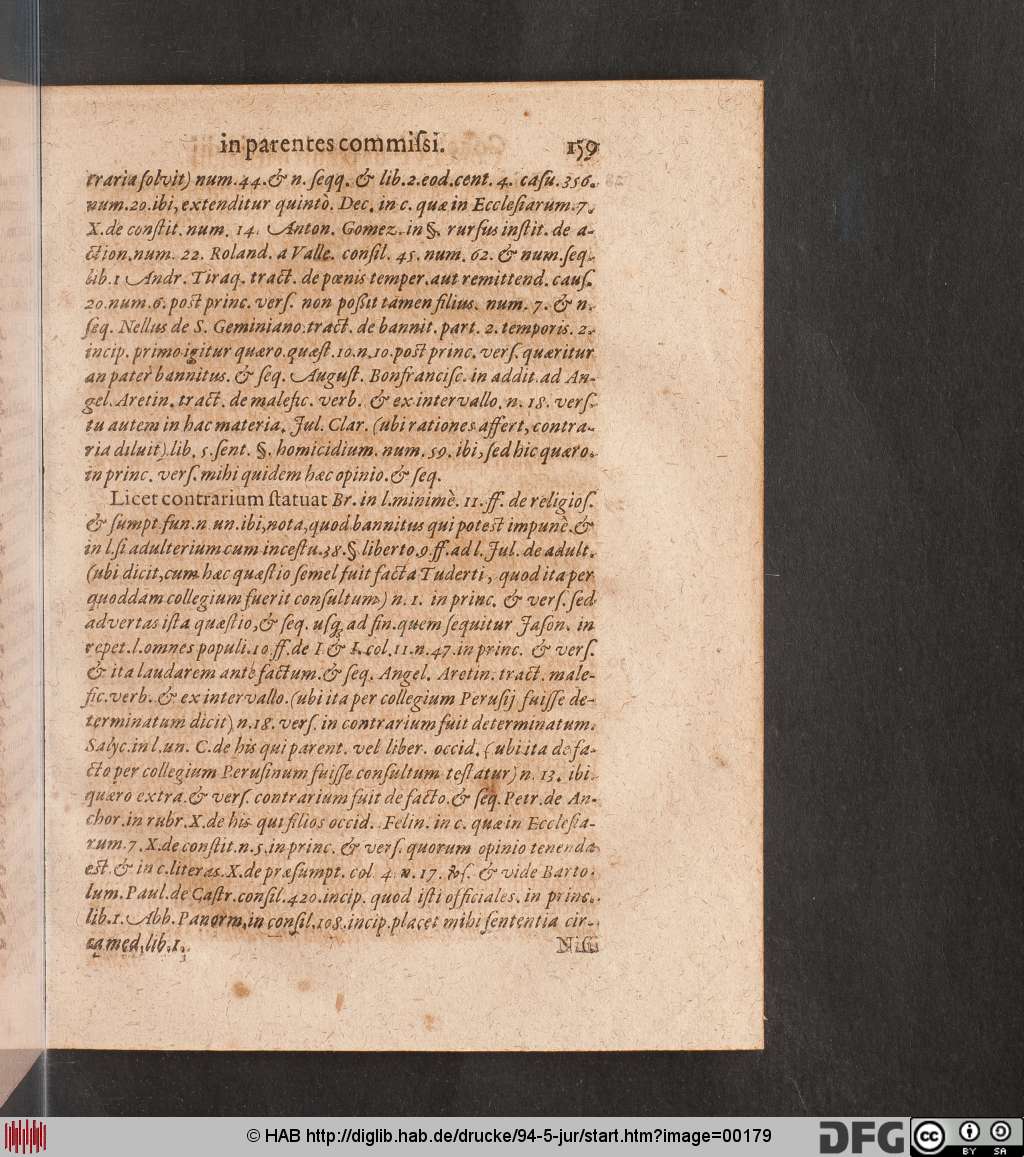 in parentes commiſsi. 159
traria ſolvit) num. 44. & n. ſeqq. & lib. 2. eod. cent. 4. caſu. 356.
num. 20. ibi, extenditur quintò. Dec. in c. quæ in Eccleſiarum. 7.
X. de conſtit. num. 14. Anton. Gomez. in §. rurſus inſtit. de a-
ction. num. 22. Roland. a Valle. conſil. 45. num. 62. & num. ſeq.
lib. 1 Andr. Tiraq. tract. de pœnis temper. aut remittend. cauſ.
20. num. 6. poſt princ. verſ. non poßit tamen filius. num. 7. & n.
ſeq. Nellus de S. Geminiano. tract. de bannit. part. 2. temporis. 2.
incip. primo igitur quæro. quæſt. 10. n. 10. poſt princ. verſ. quæritur
an pater bannitus. & ſeq. Auguſt. Bonfranciſc. in addit. ad An-
gel. Aretin. tract. de malefic. verb. & ex intervallo. n. 18. verſ.
tu autem in hac materia. Jul. Clar. (ubi rationes affert, contra-
ria diluit) lib. 5. ſent. §. homicidium. num. 59. ibi, ſed hic quæro.
in princ. verſ. mihi quidem hæc opinio. & ſeq.
Licet contrarium ſtatuat Br. in l. minimè. 11. ff. de religioſ.
& ſumpt. fun. n un. ibi, nota, quod bannitus qui poteſt impunè. &
in l. ſi adulterium cum inceſtu. 38. § liberto. 9. ff. ad l. Jul. de adult.
(ubi dicit, cum hæc quæſtio ſemel fuit facta Tuderti, quod ita per
quoddam collegium fuerit conſultum) n. 1. in princ. & verſ. ſed
advertas iſta quæſtio, & ſeq. uſq; ad fin. quem ſequitur Jaſon. in
repet. l. omnes populi. 10 ff. de I & I. col. 11. n. 47. in princ. & verſ.
& ita laudarem ante factum. & ſeq. Angel. Aretin. tract. male-
fic. verb. & ex intervallo. (ubi ita per collegium Peruſij fuiſſe de-
terminatum dicit) n. 18. verſ. in contrarium fuit determinatum.
Salyc. in l. un. C. de his qui parent. vel liber. occid. (ubi ita de fa-
cto per collegium Peruſinum fuiſſe conſultum teſtatur) n. 13. ibi.
quæro extra. & verſ. contrarium fuit de facto. & ſeq. Petr. de An-
chor. in rubr. X. de his qui filios occid. Felin. in c. quæ in Eccleſia-
rum. 7. X. de conſtit. n. 5. in princ. & verſ. quorum opinio tenenda
eſt. & in c. literas. X. de præſumpt. col. 4. n. 17. & vide Barto-
lum. Paul. de Caſtr. conſil. 420. incip. quod iſti officiales. in princ.
lib. 1. Abb. Panorm. in conſil. 108. incip. placet mihi ſententia cir-
ca med. lib. 1.
Niſi
© HAB http://diglib.hab.de/drucke/94-5-jur/start.htm?image=00179
DFG
cc
BY SA